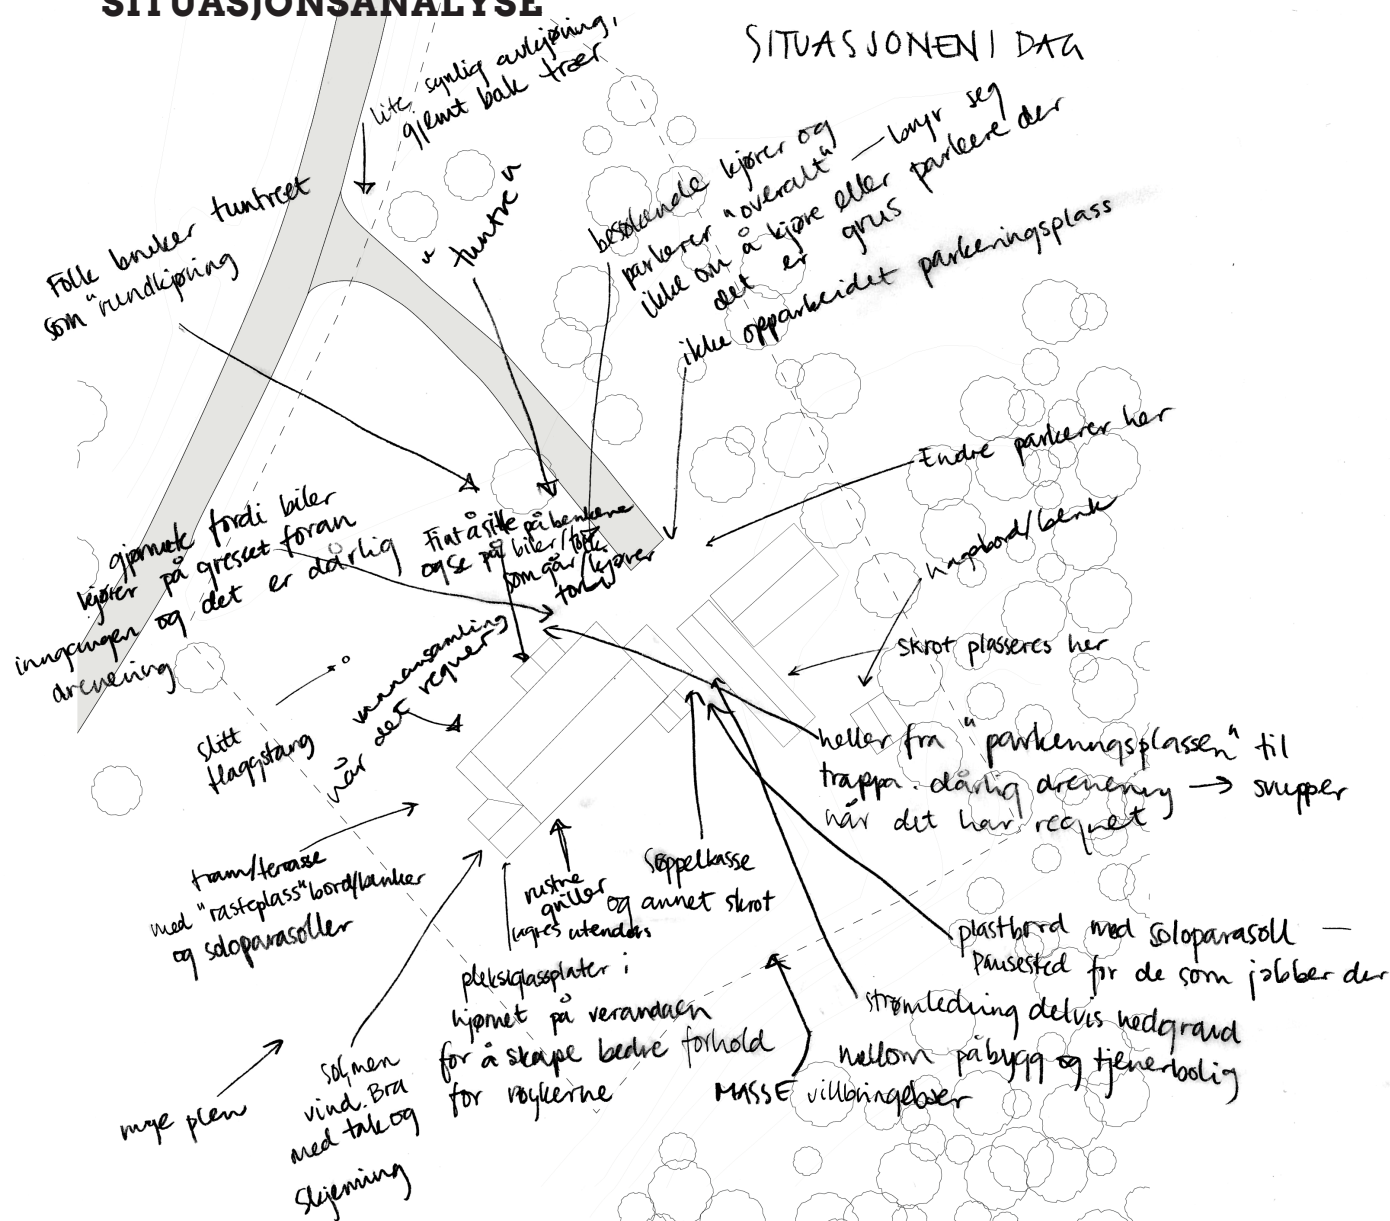 SITUASJONSANALYSE
SITUASJONEN I DAG
lite synlig avkjøring,
gjemt bak trær
"tuntre"
Folk bruker tuntreet
som "rundkjøring
besøkende kjører og
parkerer "overalt" — bryr seg
ikke om å kjøre eller parkere der
det er grus
ikke opparbeidet parkeringsplass
Endre parkerer her
hagebord/benk
skrot plasseres her
gjørmete fordi biler
kjører på gresset foran
inngangen og det er dårlig
drenering
Fint å sitte på benkene
og se på biler/folk
som går/kjører
forbi
vannansamling
når det regner
slitt
flaggstang
heller fra "parkeringsplassen" til
trappa. dårlig drenering → svupper
når det har regnet
tram/terasse
med "rasteplass"bord/benker
og soloparasoller
rustne
griller
lagres utendørs
søppelkasse
og annet skrot
plastbord med soloparasoll —
Pausested for de som jobber der
pleksiglassplater i
hjørnet på verandaen
for å skape bedre forhold
for røykerne
strømledning delvis nedgravd
mellom påbygg og tjenerbolig
MASSE villbringebær
mye plen
sol, men
vind. Bra
med tak og
skjerming